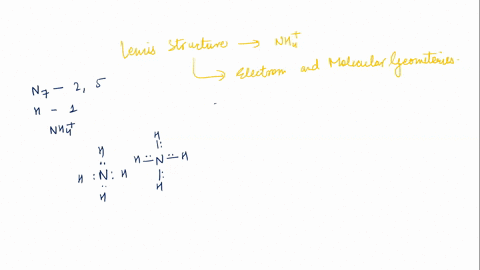 Lewis Structure → NH4+
Electron and Molecular Geometries.
N7 – 2, 5
H – 1
NH4+
H
H : N : H
H
H
H – N – H
H